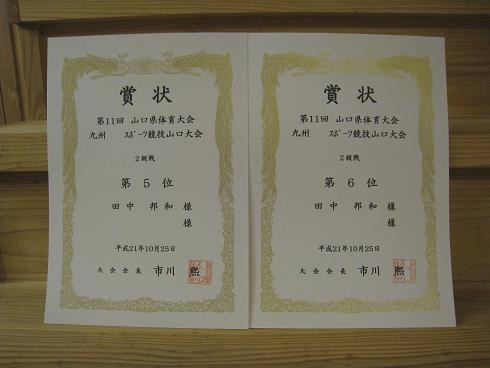 賞状
第11回 山口県体育大会
九州 スポーツ競技山口大会
2級戦
第5位
田中 邦和 様
様
平成21年10月25日
大会会長 市川 熙
賞状
第11回 山口県体育大会
九州 スポーツ競技山口大会
2級戦
第6位
田中 邦和 様
様
平成21年10月25日
大会会長 市川 熙